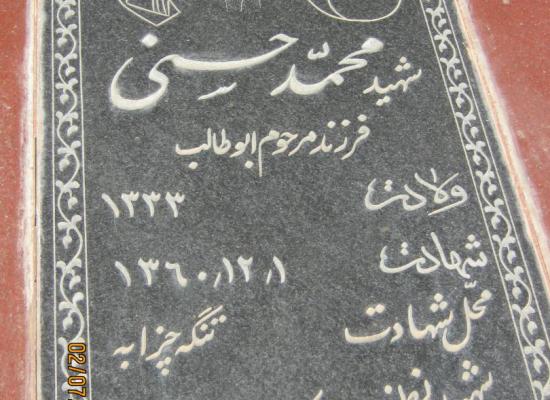 شهید محمّد حسنی
فرزند مرحوم ابوطالب
ولادت ۱۳۳۳
شهادت ۱۳۶۰/۱۲/۱
محلّ شهادت تنگه چزابه
شهید
02/07